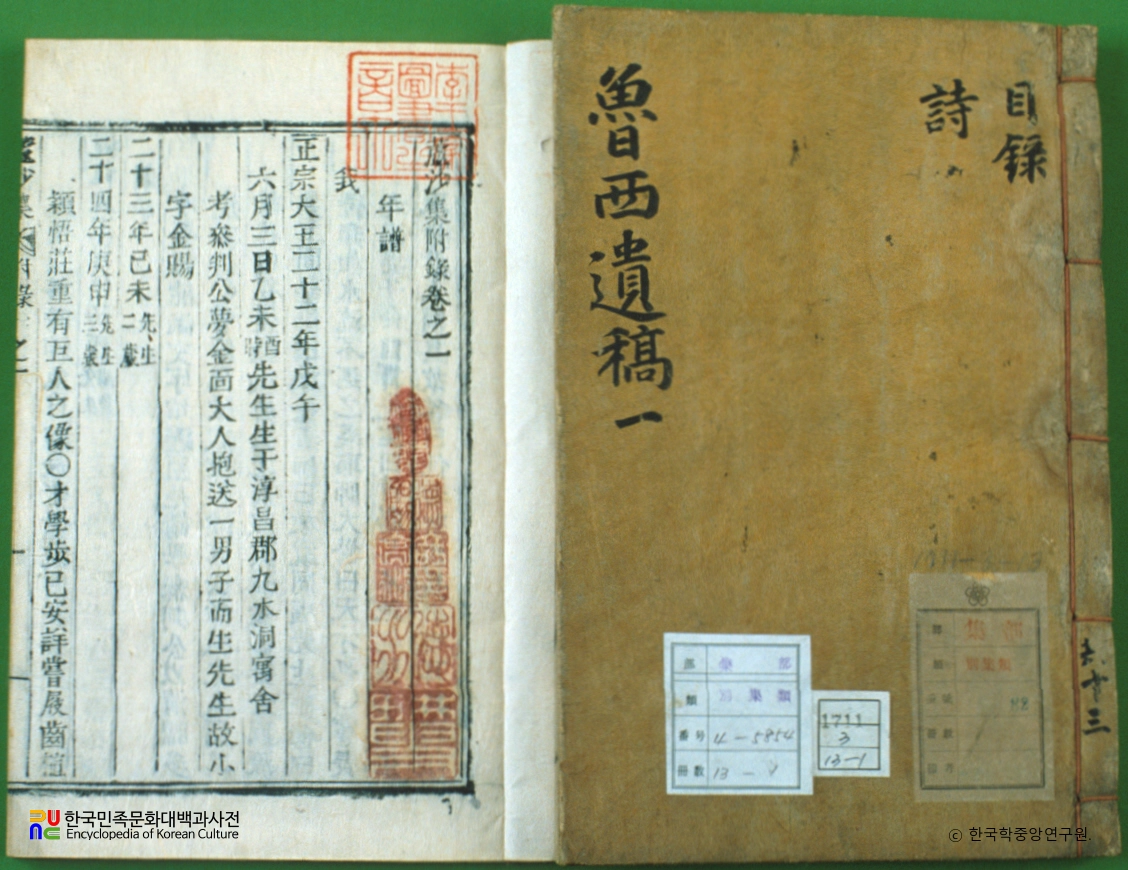 沙集附錄卷之一
年譜
正宗大王二十二年戊午
六月三日乙未酉時先生生于淳昌郡九水洞寓舍
考參判公夢金面大人抱送一男子而生先生故小
字金賜
二十三年己未先生二歲
二十四年庚申先生三歲
穎悟莊重有巨人之像〇才學步已安詳嘗屐齒
魯西遺稿 一
詩
目錄
共十三
部 集部
類 別集類
番号 4-5854
冊數 13-1
1711
3
13-1
部 集部
類 別集類
한국민족문화대백과사전
Encyclopedia of Korean Culture
© 한국학중앙연구원.